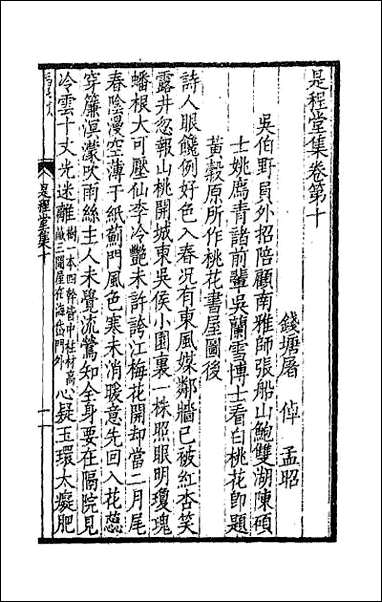 是程堂集卷第十
錢塘屠 倬 孟昭
吳伯野員外招陪顧南雅師張船山鮑雙湖陳碩
士姚鷹青諸前輩吳蘭雪博士看白桃花即題
黃穀原所作桃花書屋圖後
詩人眼饞例好色入春況有東風媒鄰牆已被紅杏笑
露井忽報山桃開城東吳侯小園裏一株照眼明瓊瑰
蟠根大可壓仙李冷艷未許誇江梅花開却當二月尾
春陰漫空薄于紙薊門風色寒未消暖意先回入花蕊
穿簾溟濛吹雨絲主人未覺流鶯知全身要在隔院見
冷雲十丈光迷離樹一本四幹皆中柱材高心疑玉環太癡肥
敵三閒屋在海岱門外
是程堂集十
一